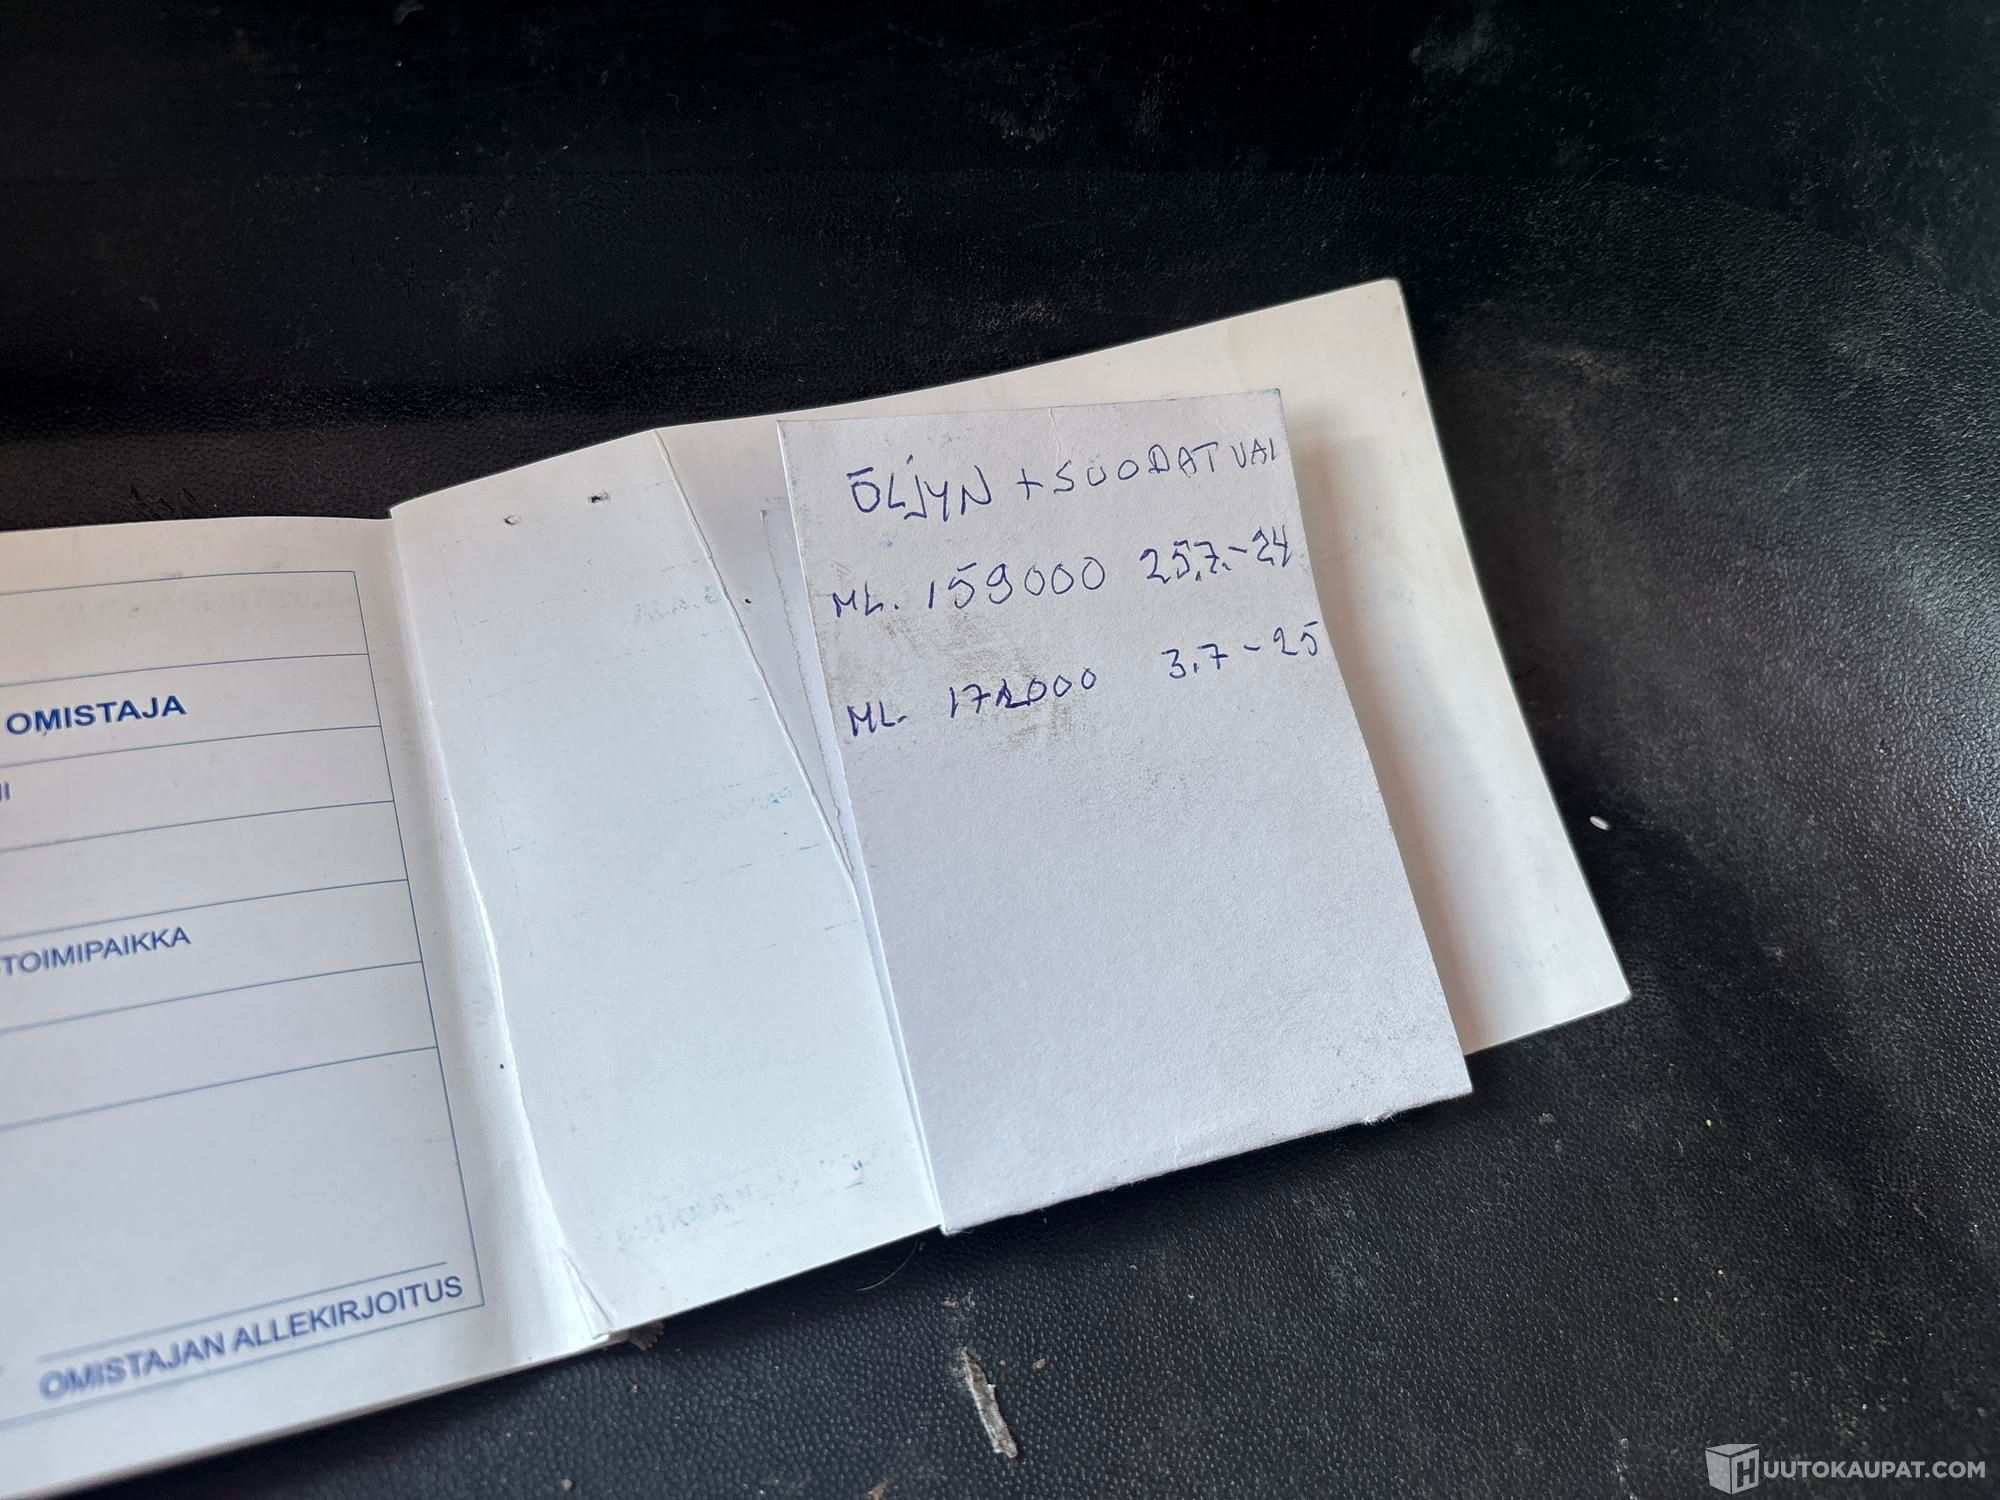 OMISTAJA
TOIMIPAIKKA
OMISTAJAN ALLEKIRJOITUS
ÖLJYN + SUODAT VAI
ML. 159000 25.7.-24
ML. 3.7-25
HUUTOKAUPAT.COM